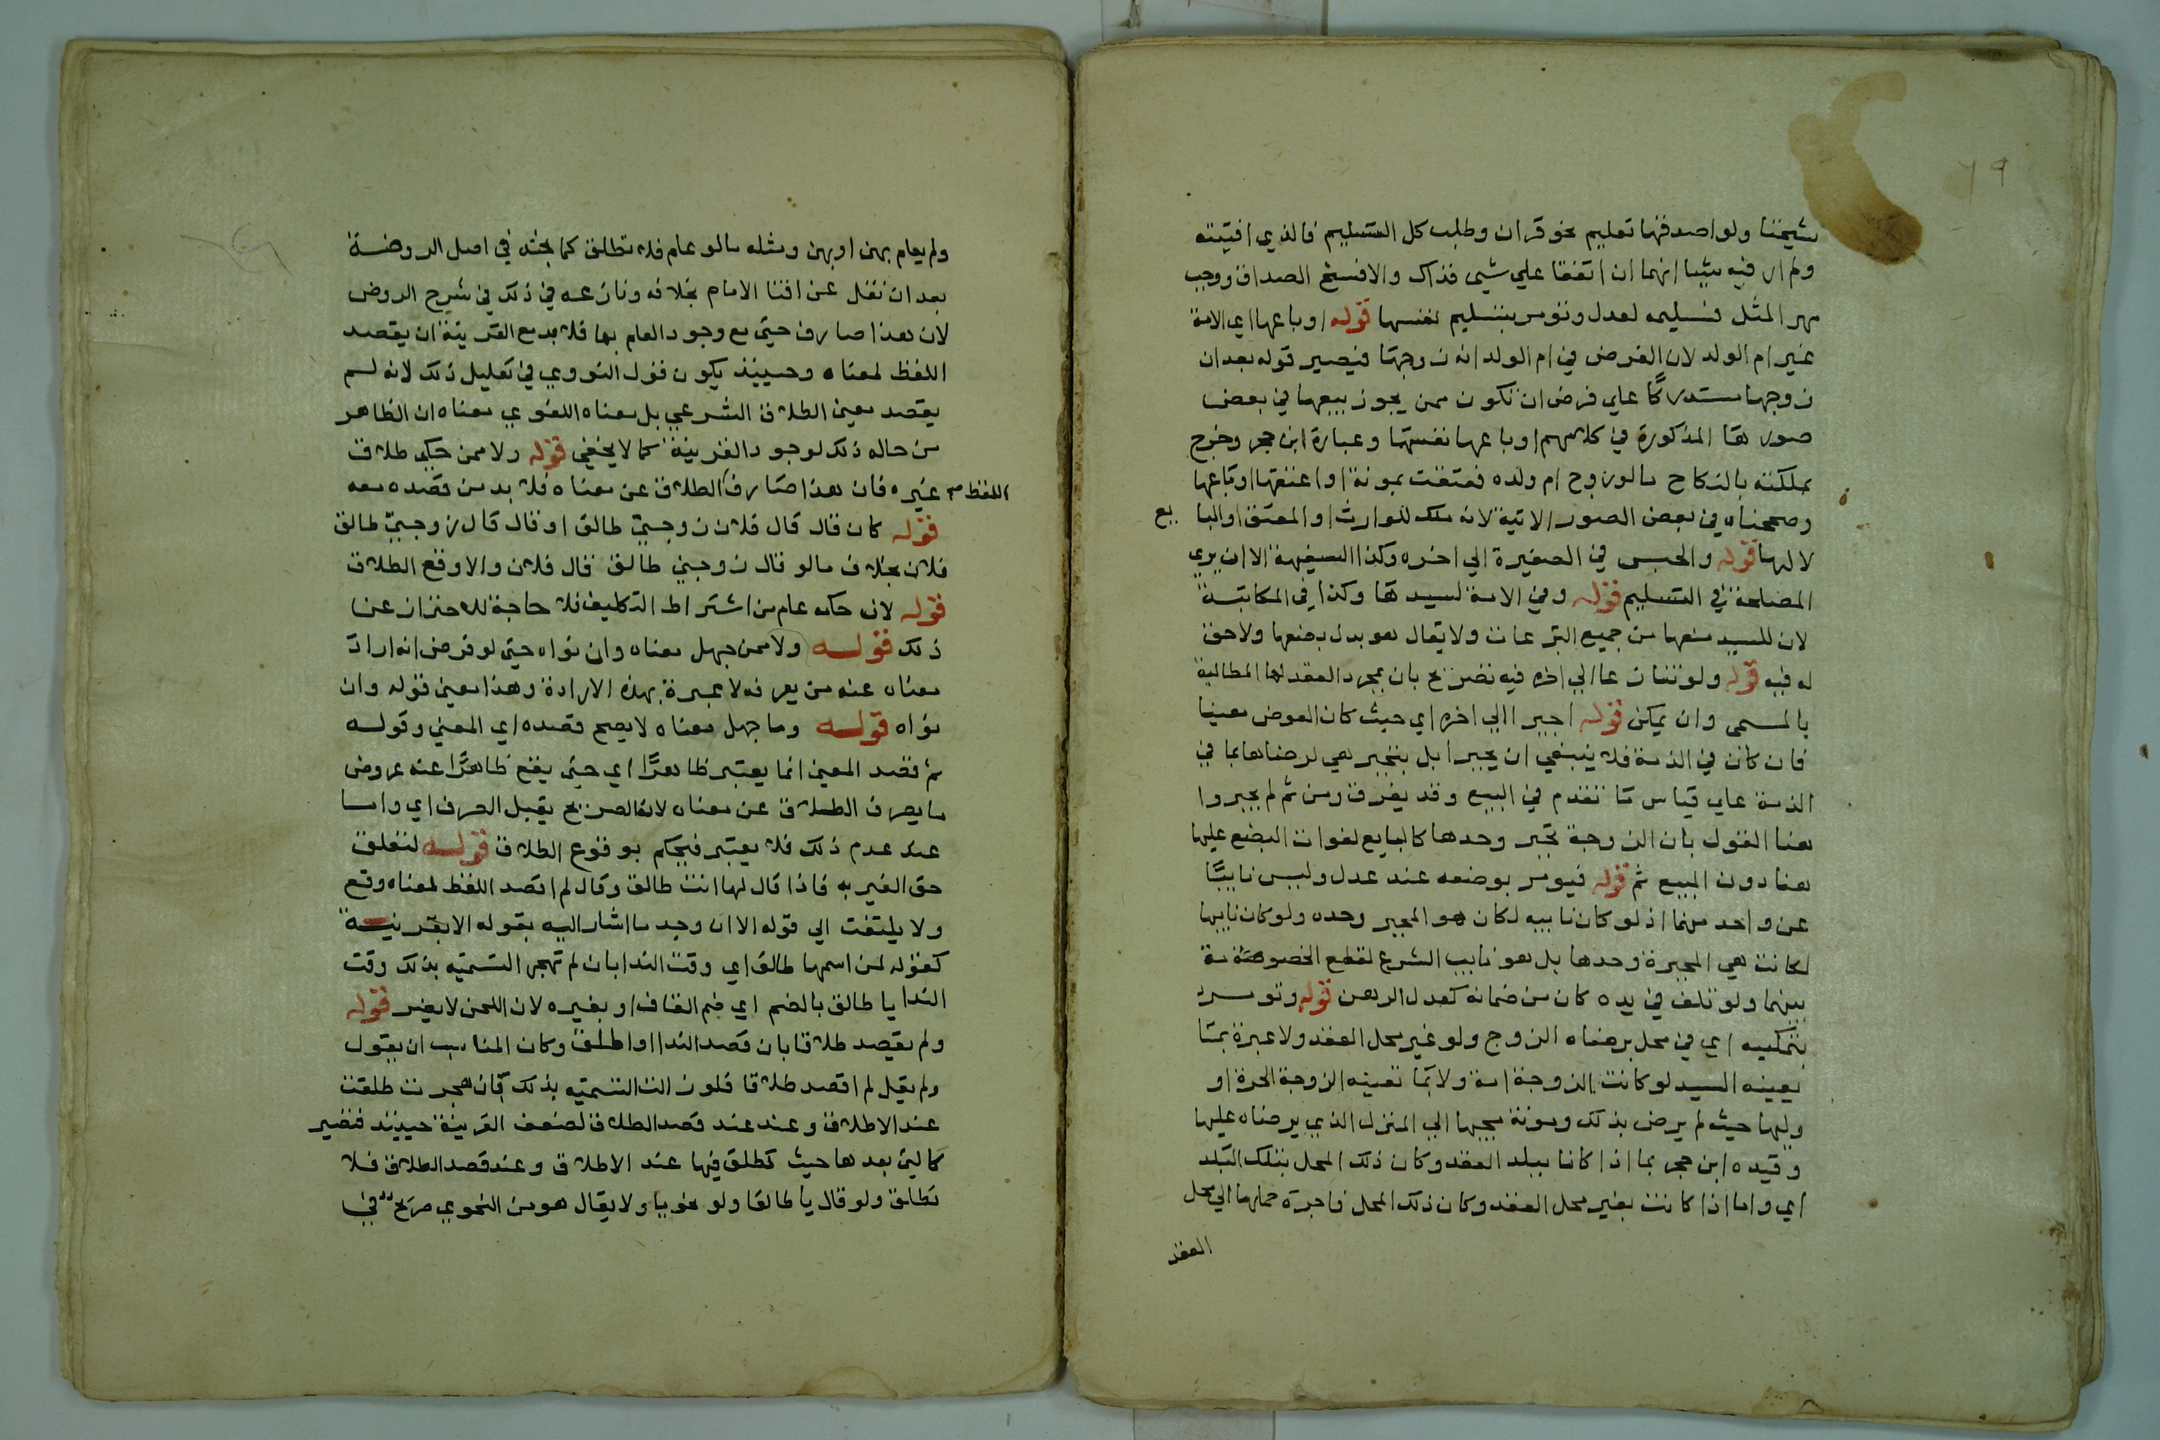 ٦٩
شيخنا ولو اصدقها تعليم نحو قران وطلب كل التسليم فالذي افتيته
ولم ار فيه شيا انهما ان اتفقا علي شي فذاك والا فسخ الصداق ووجب
مهر المثل فسليمه لعدل وتومر بتسليم نفسها قوله او باعها اي الامة
غير ام الولد لان الفرض في ام الولد انه زوجها فيصير قوله بعد ان
زوجها مستدركا علي فرض ان تكون ممن يجوز بيعها في بعض
صورها المذكورة في كلامهم او باعها نفسها وعبارة ابن حجر وخرج
بملكته بالنكاح مالو زوج ام ولده فعتقت بموته او اعتقها او باعها
وصححناه في بعض الصور الاتية لانه ملك للوارث او المعتق او البا يع
لا لها قوله والحبس في الصغيرة الي اخره وكذا السفيهة الا ان يري
المصلحة في التسليم قوله وفي الامة لسيدها وكذا في المكاتبة
لان للسيد منعها من جميع التبرعات ولا يقال هو بدل بضعها ولا حق
له فيه قوله ولو تنازعا الي اخره فيه تصريح بان بمجرد العقد لها المطالبة
بالمسمي وان يمكن قوله اجبر الي اخره اي حيث كان العوض معينا
فان كان في الذمة فلا ينبغي ان يجبرا بل يجبر هي لرضاها بما في
الذمة علي قياس ما تقدم في البيع وقد يفرق ومن ثم لم يجبروا
هنا القول بان الزوجة تجبر وحدها كالبايع لفوات البضع عليها
هنا دون المبيع ثم قوله فيومر بوضعه عند عدل وليس نايبا
عن واحد منهما اذ لو كان نايبه لكان هو المجبر وحده ولو كان نايبها
لكانت هي المجبرة وحدها بل هو نايب الشرع لقطع الخصومة
بينهما ولو تلف في يده كان من ضمانه كعدل الرهن قوله وتومر
بتمكينه اي في محل يرضاه الزوج ولو غير محل العقد ولا عبرة بما
يعينه السيد لو كانت الزوجة امة ولا بما تعينه الزوجة الحرة او
وليها حيث لم يرض بذلك ومونة مجيها الي المنزل الذي يرضاه عليها
وقيده ابن حجر بما اذا كانا ببلد العقد وكان ذلك المحل بتلك البلد
اي واما اذا كانت بغير محل العقد وكان ذلك المحل فاجرة حملها الي محل
العقد
ولم يعلم بهن او بهن ومثله مالو علم فلا تطلق كما بحثه في اصل الروضة
بعد ان نقل عن افتا الامام بخلافه ونازعه في ذلك في شرح الروض
لان هذا صارف حتي مع وجود العلم بها فلا بد مع القرينة ان يقصد
اللفظ لمعناه وحينيذ يكون قول النووي في تعليل ذلك لانه لم
يقصد معين الطلاق الشرعي بل معناه اللغوي معناه ان الظاهر
من حاله ذلك لوجود القرينة كما لا يخفي قوله ولا ممن حكي طلاق
غيره فان هذا صارف الطلاق عن معناه فلا بد من قصده معه
اللفظ صح
قوله كان قال قال فلان زوجتي طالق او قال قال زوجتي طالق
فلان بخلاف مالو قال زوجتي طالق قال فلان والا وقع الطلاق
قوله لان حكمه علم من اشتراط التكليف فلا حاجة للاحتراز عن
ذلك قوله ولا ممن جهل معناه وان نواه حتي لو فرض انه اراد
معناه عند من يعرفه لا عبرة بهذه الارادة وهذا معين قوله وان
نواه قوله وما جهل معناه لا يصح قصده اي المعني وقوله
ثم قصد المعين انما يعتبر ظاهرا اي حتي يقع ظاهرا عند عروض
ما يصرف الطلاق عن معناه لان الصريح يقبل الصرف اي واما
عند عدم ذلك فلا يعتبر فيحكم بوقوع الطلاق قوله لتعلق
حق الغير به فاذا قال لها انت طالق وقال لم اقصد اللفظ لمعناه وقع
ولا يلتفت الي قوله الا ان وجد ما اشار اليه بقوله الا بقرينة
كقوله لمن اسمها طالق اي وقت الندا بان لم تهجر التسميه بذلك وقت
الندا يا طالق بالضم اي ضم القاف او بغيره لان اللحن لا يضر قوله
ولم يقصد طلاقا بان قصد الندا او اطلق وكان المناسب ان يقول
ولم يقل لم اقصد طلاقا فلو زالت التسميه بذلك بان هجرت طلقت
عند الاطلاق وعند عند قصد الطلاق لضعف القرينة حينيذ فتصير
كالتي بعدها حيث تطلق فيها عند الاطلاق وعند قصد الطلاق فلا
تطلق ولو قال يا طالقا ولو نحويا ولا يقال هو من النحوي صريح في